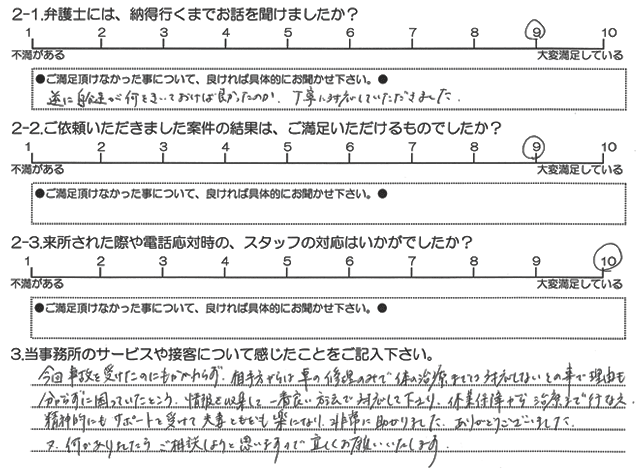 2-1.弁護士には、納得行くまでお話を聞けましたか？
1 2 3 4 5 6 7 8 9 10
不満がある 大変満足している
●ご満足頂けなかった事について、良ければ具体的にお聞かせ下さい。●
逆に自分達が何をきいておけば良かったのか、丁寧に対応していただきました。
2-2.ご依頼いただきました案件の結果は、ご満足いただけるものでしたか？
1 2 3 4 5 6 7 8 9 10
不満がある 大変満足している
●ご満足頂けなかった事について、良ければ具体的にお聞かせ下さい。●
2-3.来所された際や電話応対時の、スタッフの対応はいかがでしたか？
1 2 3 4 5 6 7 8 9 10
不満がある 大変満足している
●ご満足頂けなかった事について、良ければ具体的にお聞かせ下さい。●
3.当事務所のサービスや接客について感じたことをご記入下さい。
今回事故を受けたのにもかかわらず、相手方からは車の修理のみで体の治療まで対応しないとの事で理由も
分からずに困っていたところ、情報を収集して一番良い方法で対応して下さり、休業保障や治療まで行なえ
精神的にもサポートを受けて夫妻ともども楽になり、非常に助かりました。ありがとうございました。
又、何かありましたらご相談しようと思いますので宜しくお願いいたします。